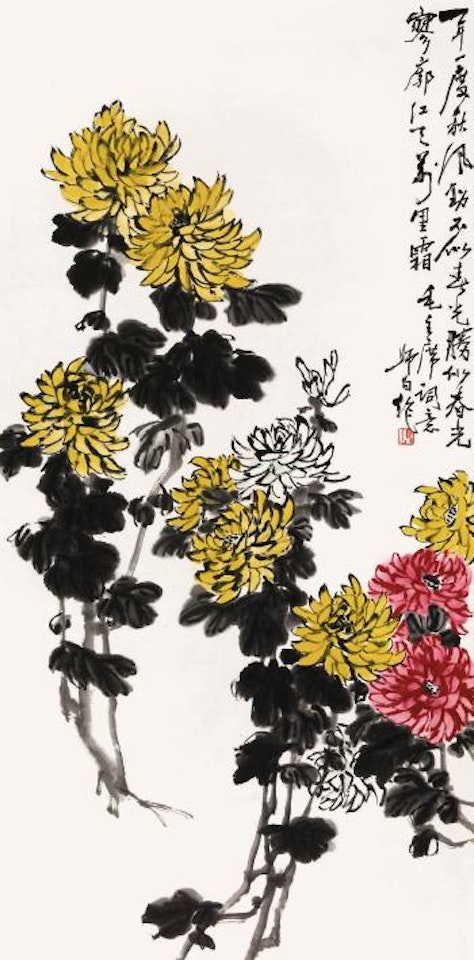 一年一度秋風勁不似春光勝似春光
寥廓江天萬里霜 毛主席詞意
師白作